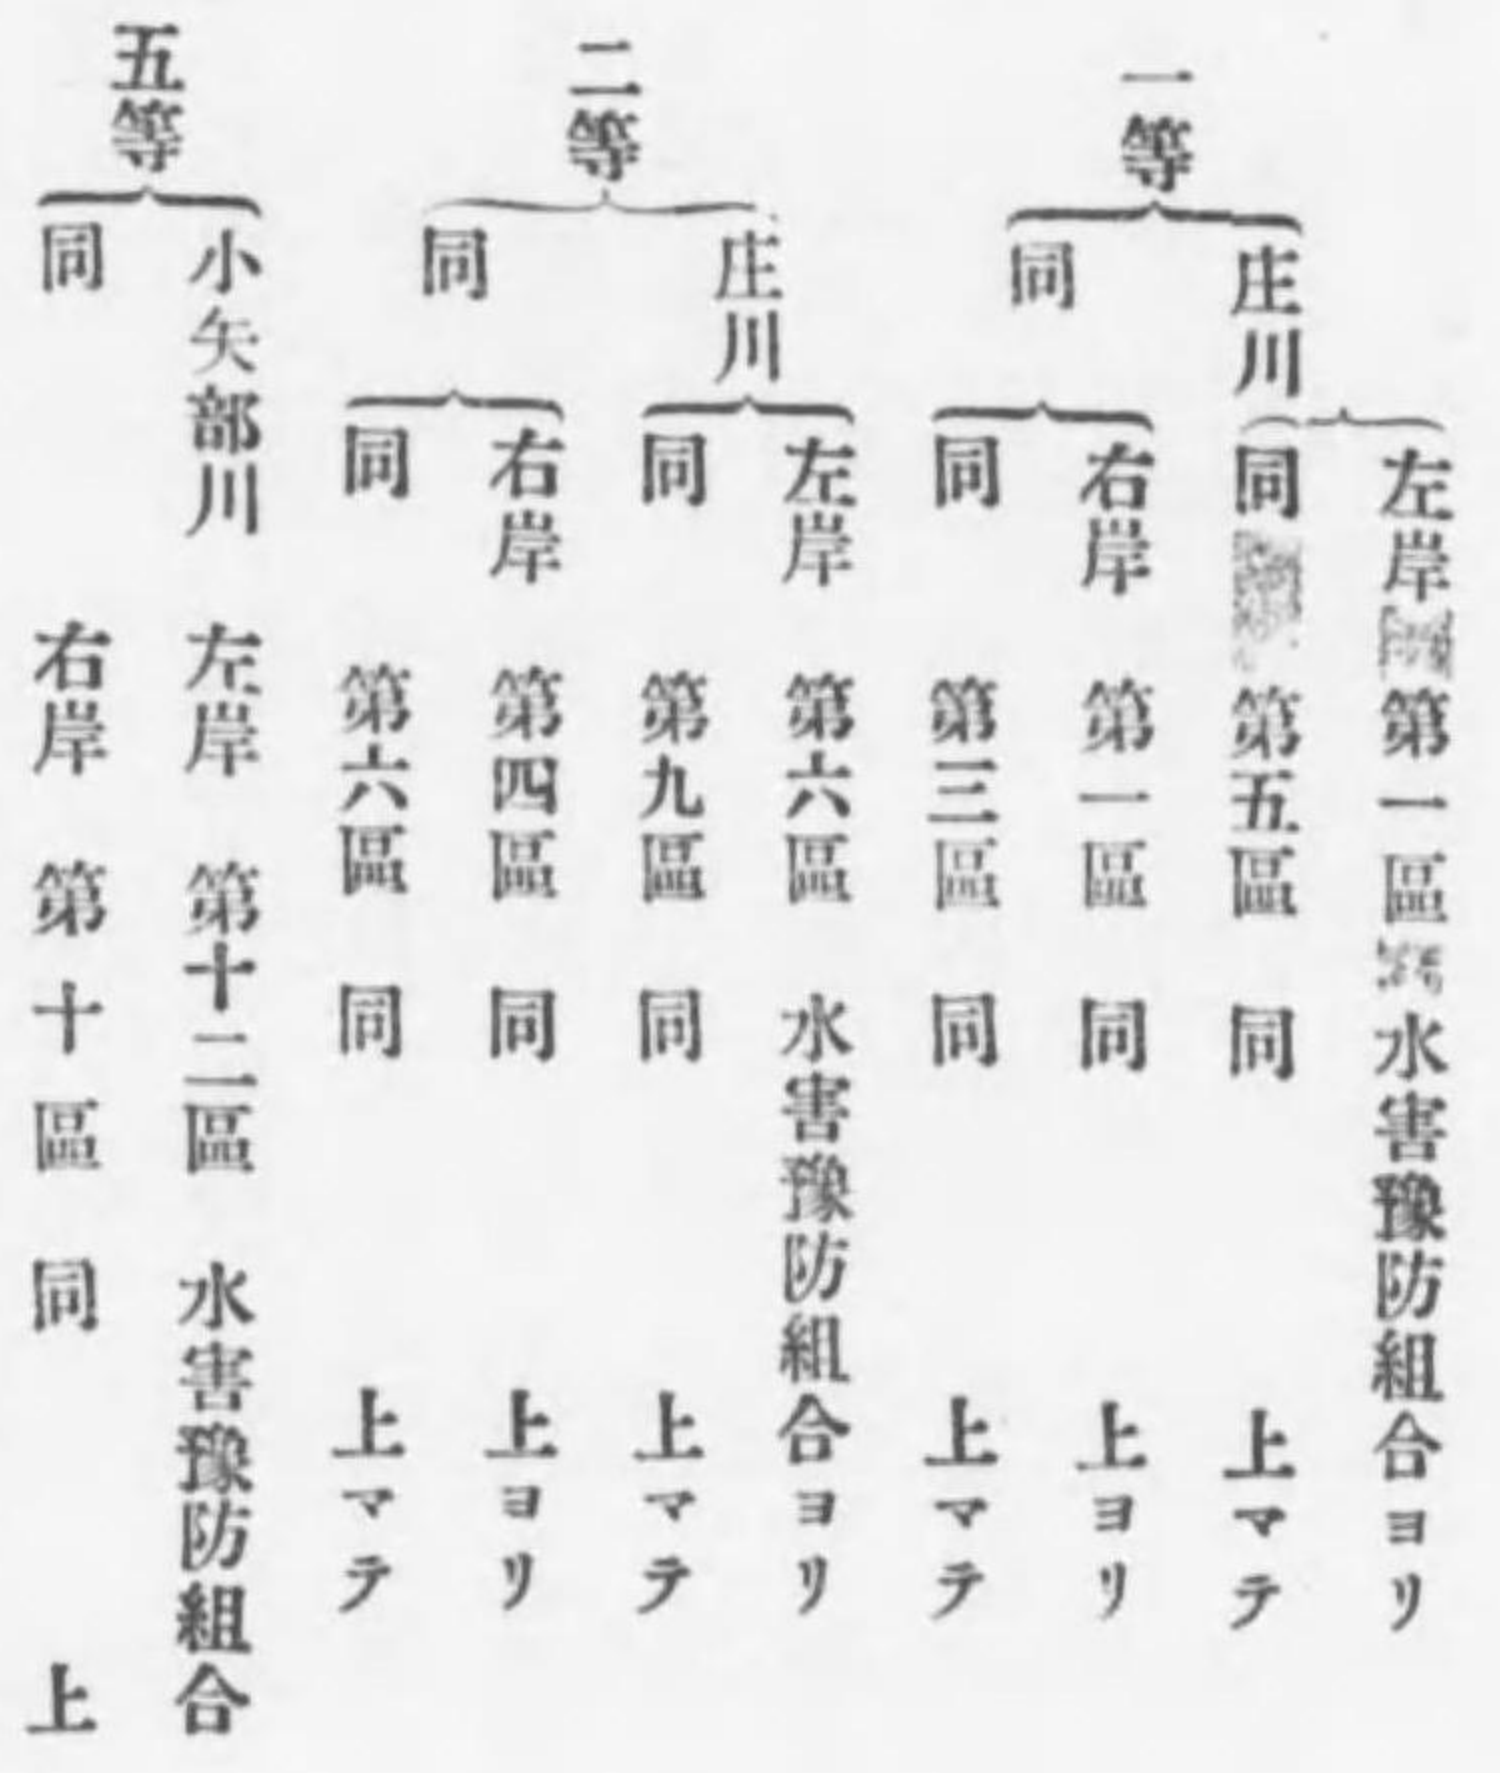 一等
庄川
左岸 第一區 水害豫防組合ヨリ
同 第五區 同上マテ
同
右岸 第一區 同上ヨリ
同 第三區 同上マテ
二等
庄川
左岸 第六區 水害豫防組合ヨリ
同 第九區 同上マテ
同
右岸 第四區 同上ヨリ
同 第六區 同上マテ
五等
小矢部川 左岸 第十二區 水害豫防組合
同 右岸 第十區 同上